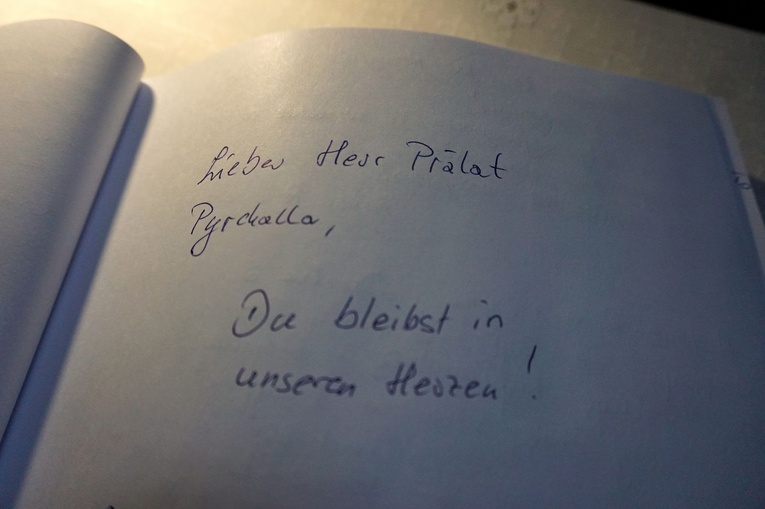 Lieber Herr Prälat
Pyrchalla,
Du bleibst in
unseren Herzen!